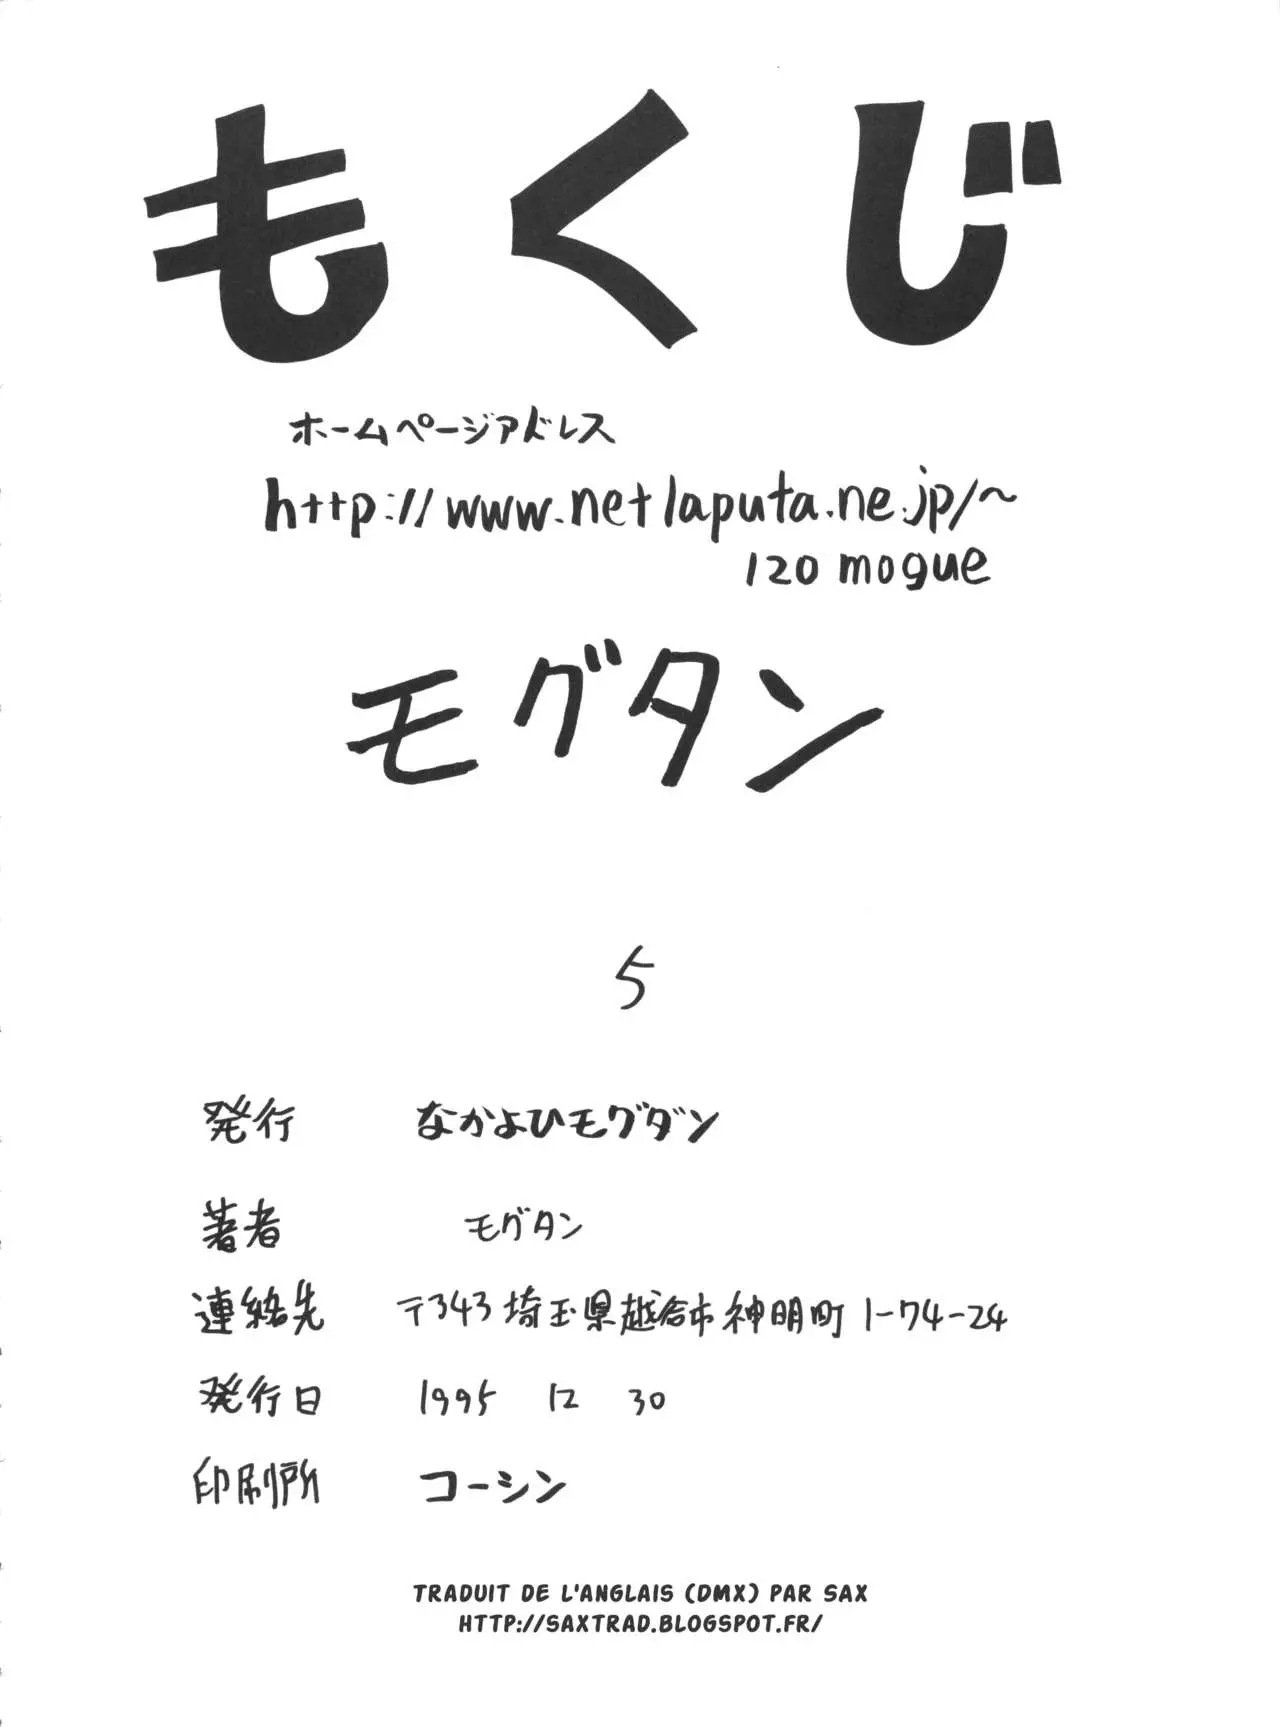 もくじ
ホームページアドレス
http://www.netlaputa.ne.jp/~
120mogue
モグタン
5
発行 なかよひモグダン
著者 モグタン
連絡先 〒343埼玉県越谷市神明町1-74-24
発行日 1995 12 30
印刷所 コーシン
TRADUIT DE L'ANGLAIS (DMX) PAR SAX
HTTP://SAXTRAD.BLOGSPOT.FR/